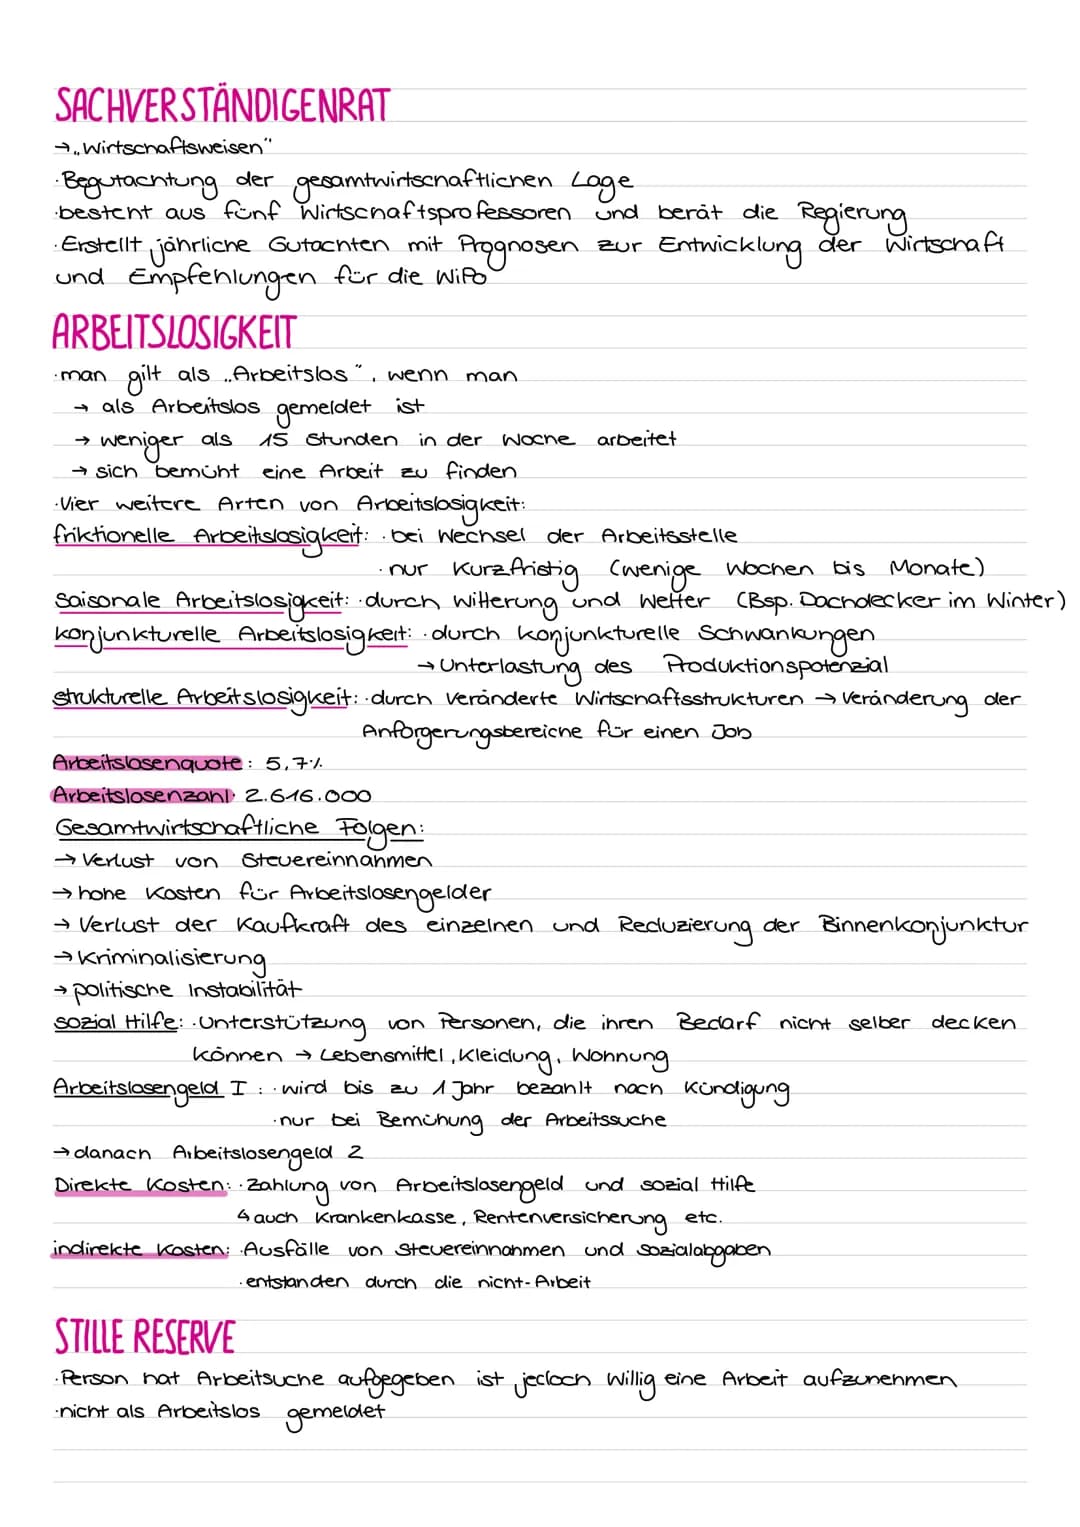 SACHVERSTÄNDIGENRAT
→ „Wirtschaftsweisen"
· Begutachtung der gesamtwirtschaftlichen Lage
· besteht aus fünf Wirtschaftsprofessoren und berät die Regierung
· Erstellt jährliche Gutachten mit Prognosen zur Entwicklung der Wirtschaft
und Empfehlungen für die WiPo
ARBEITSLOSIGKEIT
· man gilt als „Arbeitslos", wenn man
→ als Arbeitslos gemeldet ist
→ weniger als 15 Stunden in der Woche arbeitet
→ sich bemüht eine Arbeit zu finden
· Vier weitere Arten von Arbeitslosigkeit:
friktionelle Arbeitslosigkeit: · bei Wechsel der Arbeitsstelle
· nur Kurzfristig (wenige Wochen bis Monate)
Saisonale Arbeitslosigkeit: · durch Witterung und Wetter (Bsp. Dachdecker im Winter)
konjunkturelle Arbeitslosigkeit: · durch konjunkturelle Schwankungen
→ Unterlastung des Produktionspotenzial
strukturelle Arbeitslosigkeit: · durch veränderte Wirtschaftsstrukturen → Veränderung der
Anforgerungsbereiche für einen Job
Arbeitslosenquote: 5,7%
Arbeitslosenzahl: 2.616.000
Gesamtwirtschaftliche Folgen:
→ Verlust von Steuereinnahmen
→ hohe Kosten für Arbeitslosengelder
→ Verlust der Kaufkraft des einzelnen und Reduzierung der Binnenkonjunktur
→ Kriminalisierung
→ politische Instabilität
sozial Hilfe: · Unterstützung von Personen, die ihren Bedarf nicht selber decken
können → Lebensmittel, Kleidung, Wohnung
Arbeitslosengeld I : · wird bis zu 1 Jahr bezahlt nach Kündigung
· nur bei Bemühung der Arbeitssuche
→ danach Arbeitslosengeld 2
Direkte Kosten: · Zahlung von Arbeitslosengeld und sozial Hilfe
↳ auch Krankenkasse, Rentenversicherung etc.
indirekte Kosten: · Ausfälle von Steuereinnahmen und Sozialabgaben
· entstanden durch die nicht-Arbeit
STILLE RESERVE
· Person hat Arbeitsuche aufgegeben ist jedoch Willig eine Arbeit aufzunehmen
· nicht als Arbeitslos gemeldet